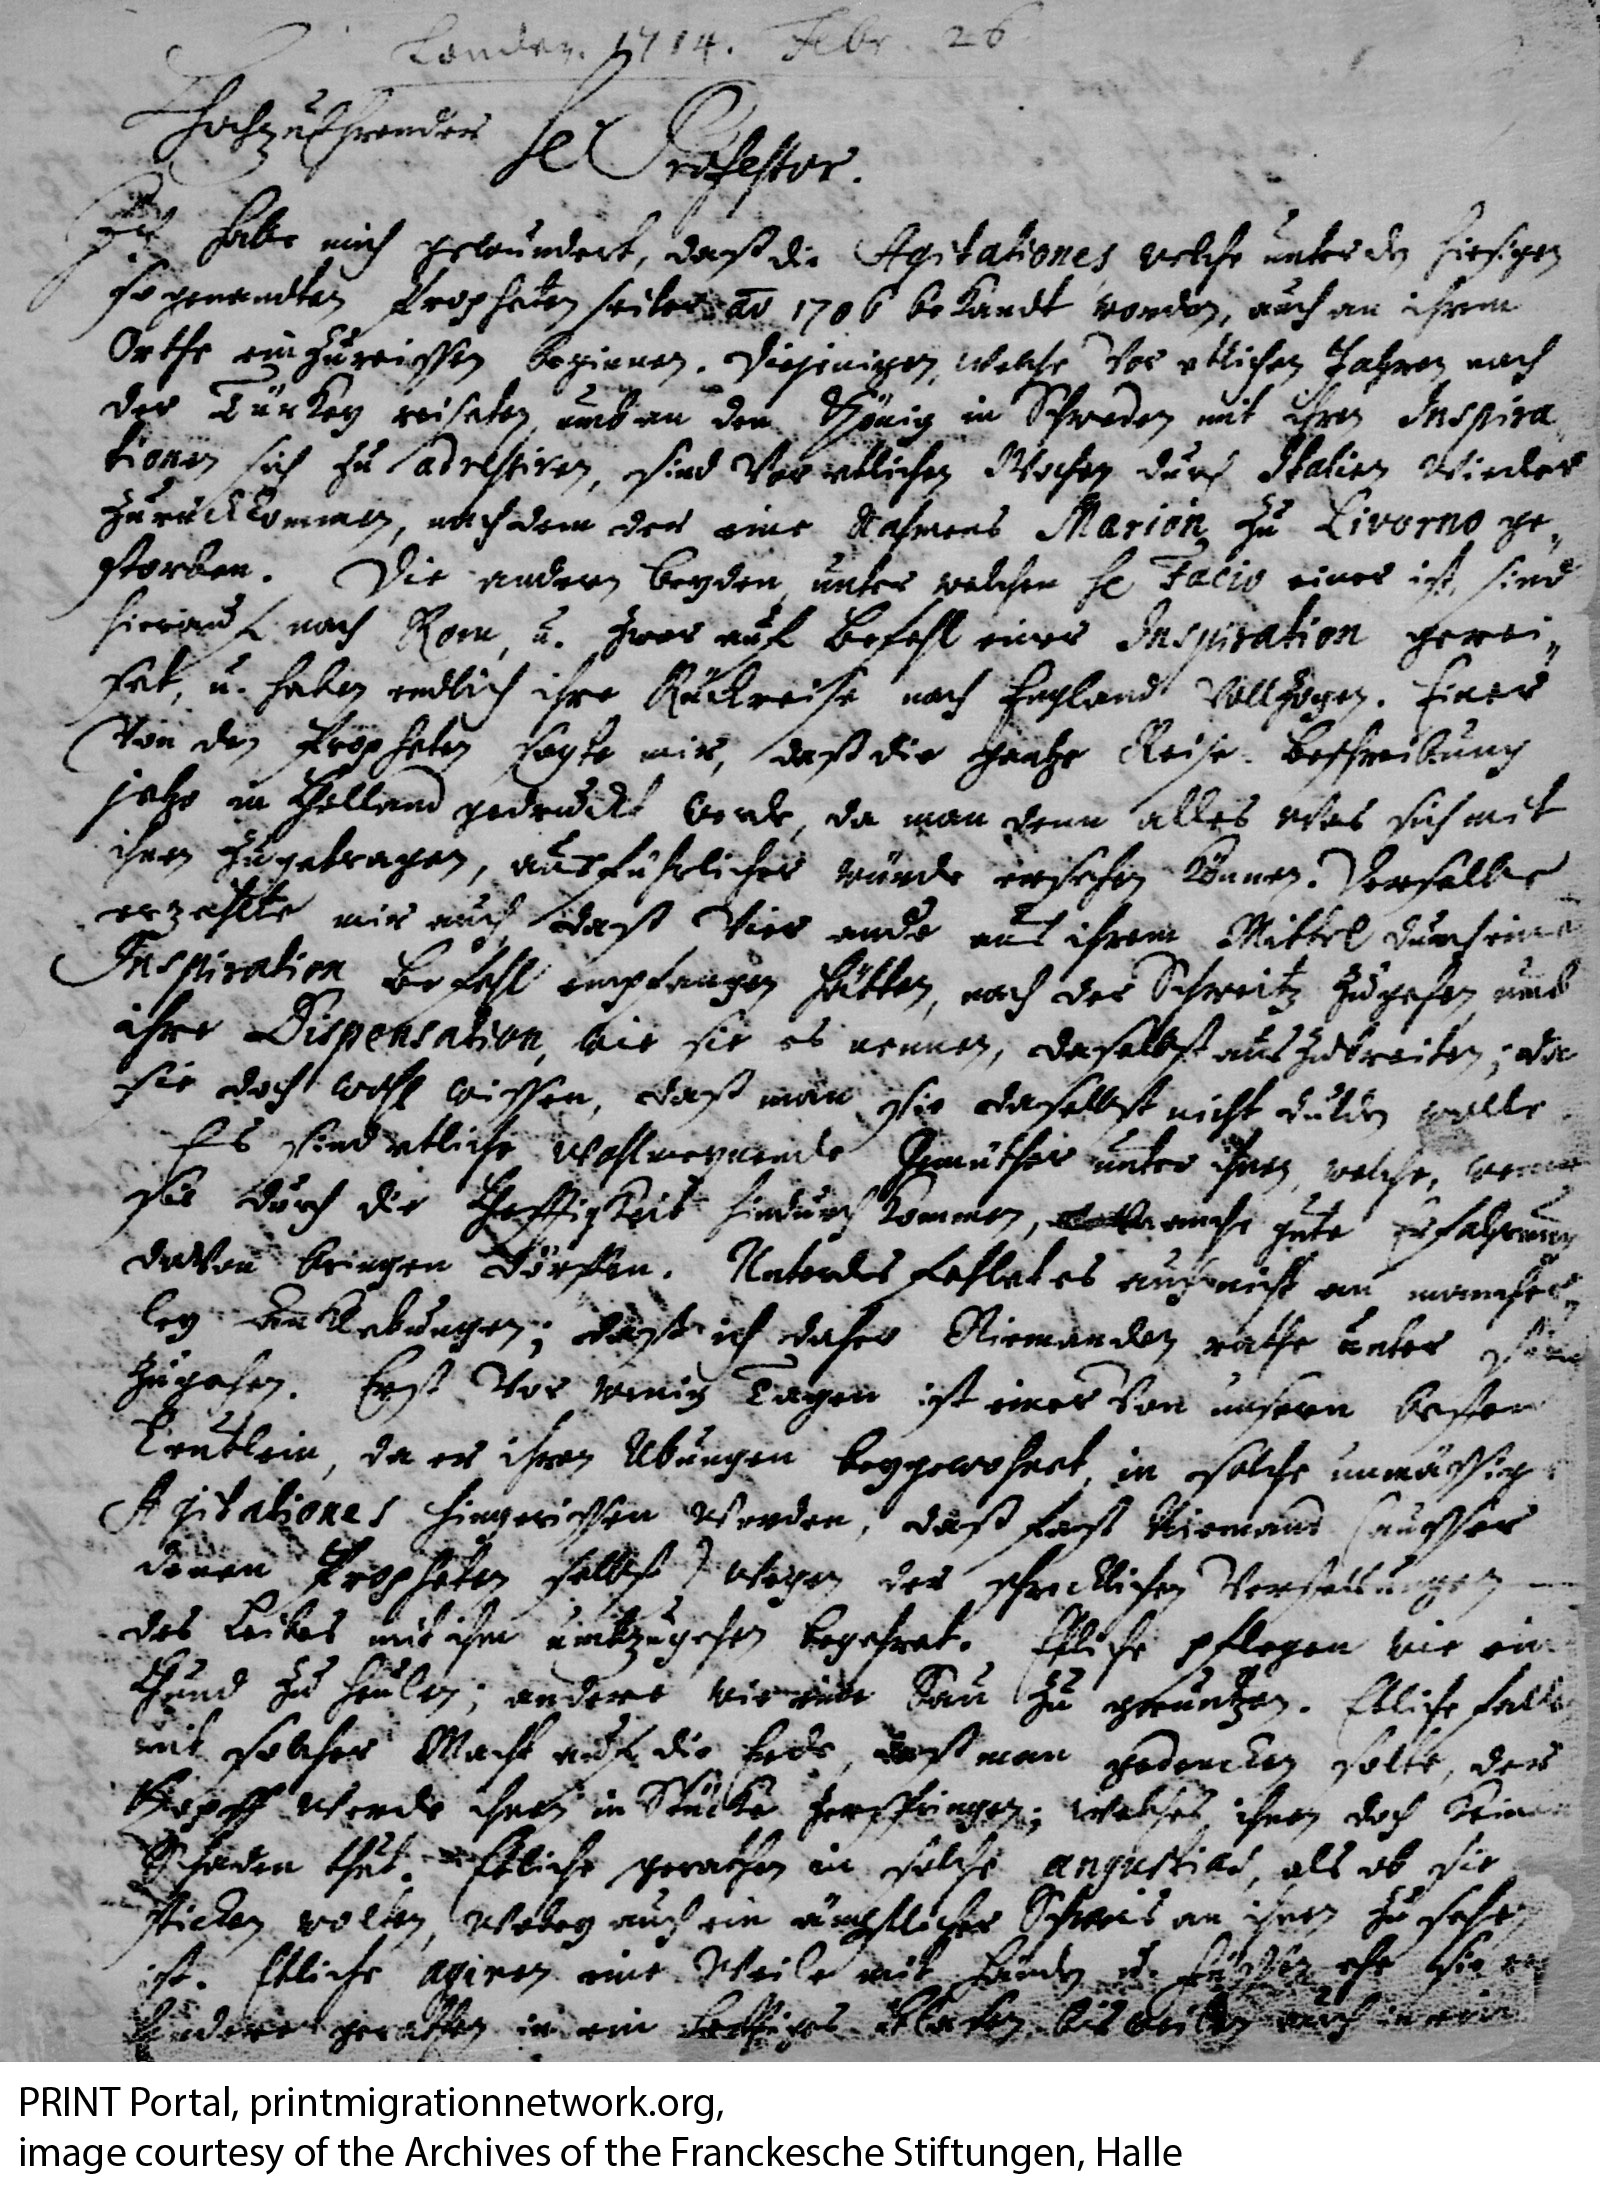 London. 1714. Febr. 26
Hochzuehrender
He Professor.
Ich habe mich gewundert, daß die Agitationes, welche unter den hiesigen
so genandten Propheten seiter ao 1706 bekandt worden, auch an ihrem
Orthe einzureissen beginnen. Diejenigen, welche vor etlichen Jahren nach
der Türkey reiseten, umb an den König in Schweden mit ihren Inspira
tionen sich zu adressiren, sind vor etlichen Wochen durch Italien wieder
zurückkommen, nachdem der eine Nahmens Marion zu Livorno ge„
storben. Die andern beyden, unter welchen He Facio einer ist, sind
hierauf nach Rom, u. zwar auf Befehl einer Inspiration gerei„
set, u. haben endlich ihre Rückreise nach England vollzogen. Einer
von den Propheten sagte mir, daß die gantze Reise-Beschreibung
jetzo in Holland gedruckt werde, da man denn alles was sich mit
ihnen zugetragen, ausführlicher würde ersehen können. Derselbe
erzehlte mir auch, daß vier andre aus ihrem Mittel durch eine
Inspiration Befehl empfangen hätten, nach der Schweitz zugehen, umb
ihre Dispensation, wie sie es nennen, daselbst auszubreiten; da
sie doch wohl wissen, daß man sie daselbst nicht dulden wolle
Es sind etliche wohlmeynende Gemüther unter ihnen, welche, wenn
sie durch die Hefftigkeit hindurch kommen, manche gute Erfahrung
davon bringen dörfften. Unterdes fehlet es auch nicht an mancher„
ley Anklebungen; daß ich daher Niemanden rathe unter sie
zugehen. Erst vor wenig Tagen ist einer von unsern besten
Leutlein, da er ihren Ubungen beygewohnet, in solche unmässige
Agitationes hingerissen worden, daß fast Niemand (ausser
denen Propheten selbst) wegen der schrecklichen Verstellungen
des Leibes mit ihm umbzugehen begehret. Etliche pflegen wie ein
Hund zu heulen; andere wie eine Sau zu gruntzen. Etliche fallen
mit solcher Macht auf die Erde, daß man gedencken solte, der
Kopff werde ihnen in Stücke zerspringen; welches ihnen doch keinen
Schaden thut. Etliche gerathen in solche angustias, als ob sie
sticken wolten, wobey auch ein ängstlicher Schweis an ihnen zu sehen
ist. Etliche agiren eine Weile mit Händen u. Füssen ehe sie
Andere gerathen in ein hefftiges bisweilen auch in ein
PRINT Portal, printmigrationnetwork.org,
image courtesy of the Archives of the Franckesche Stiftungen, Halle